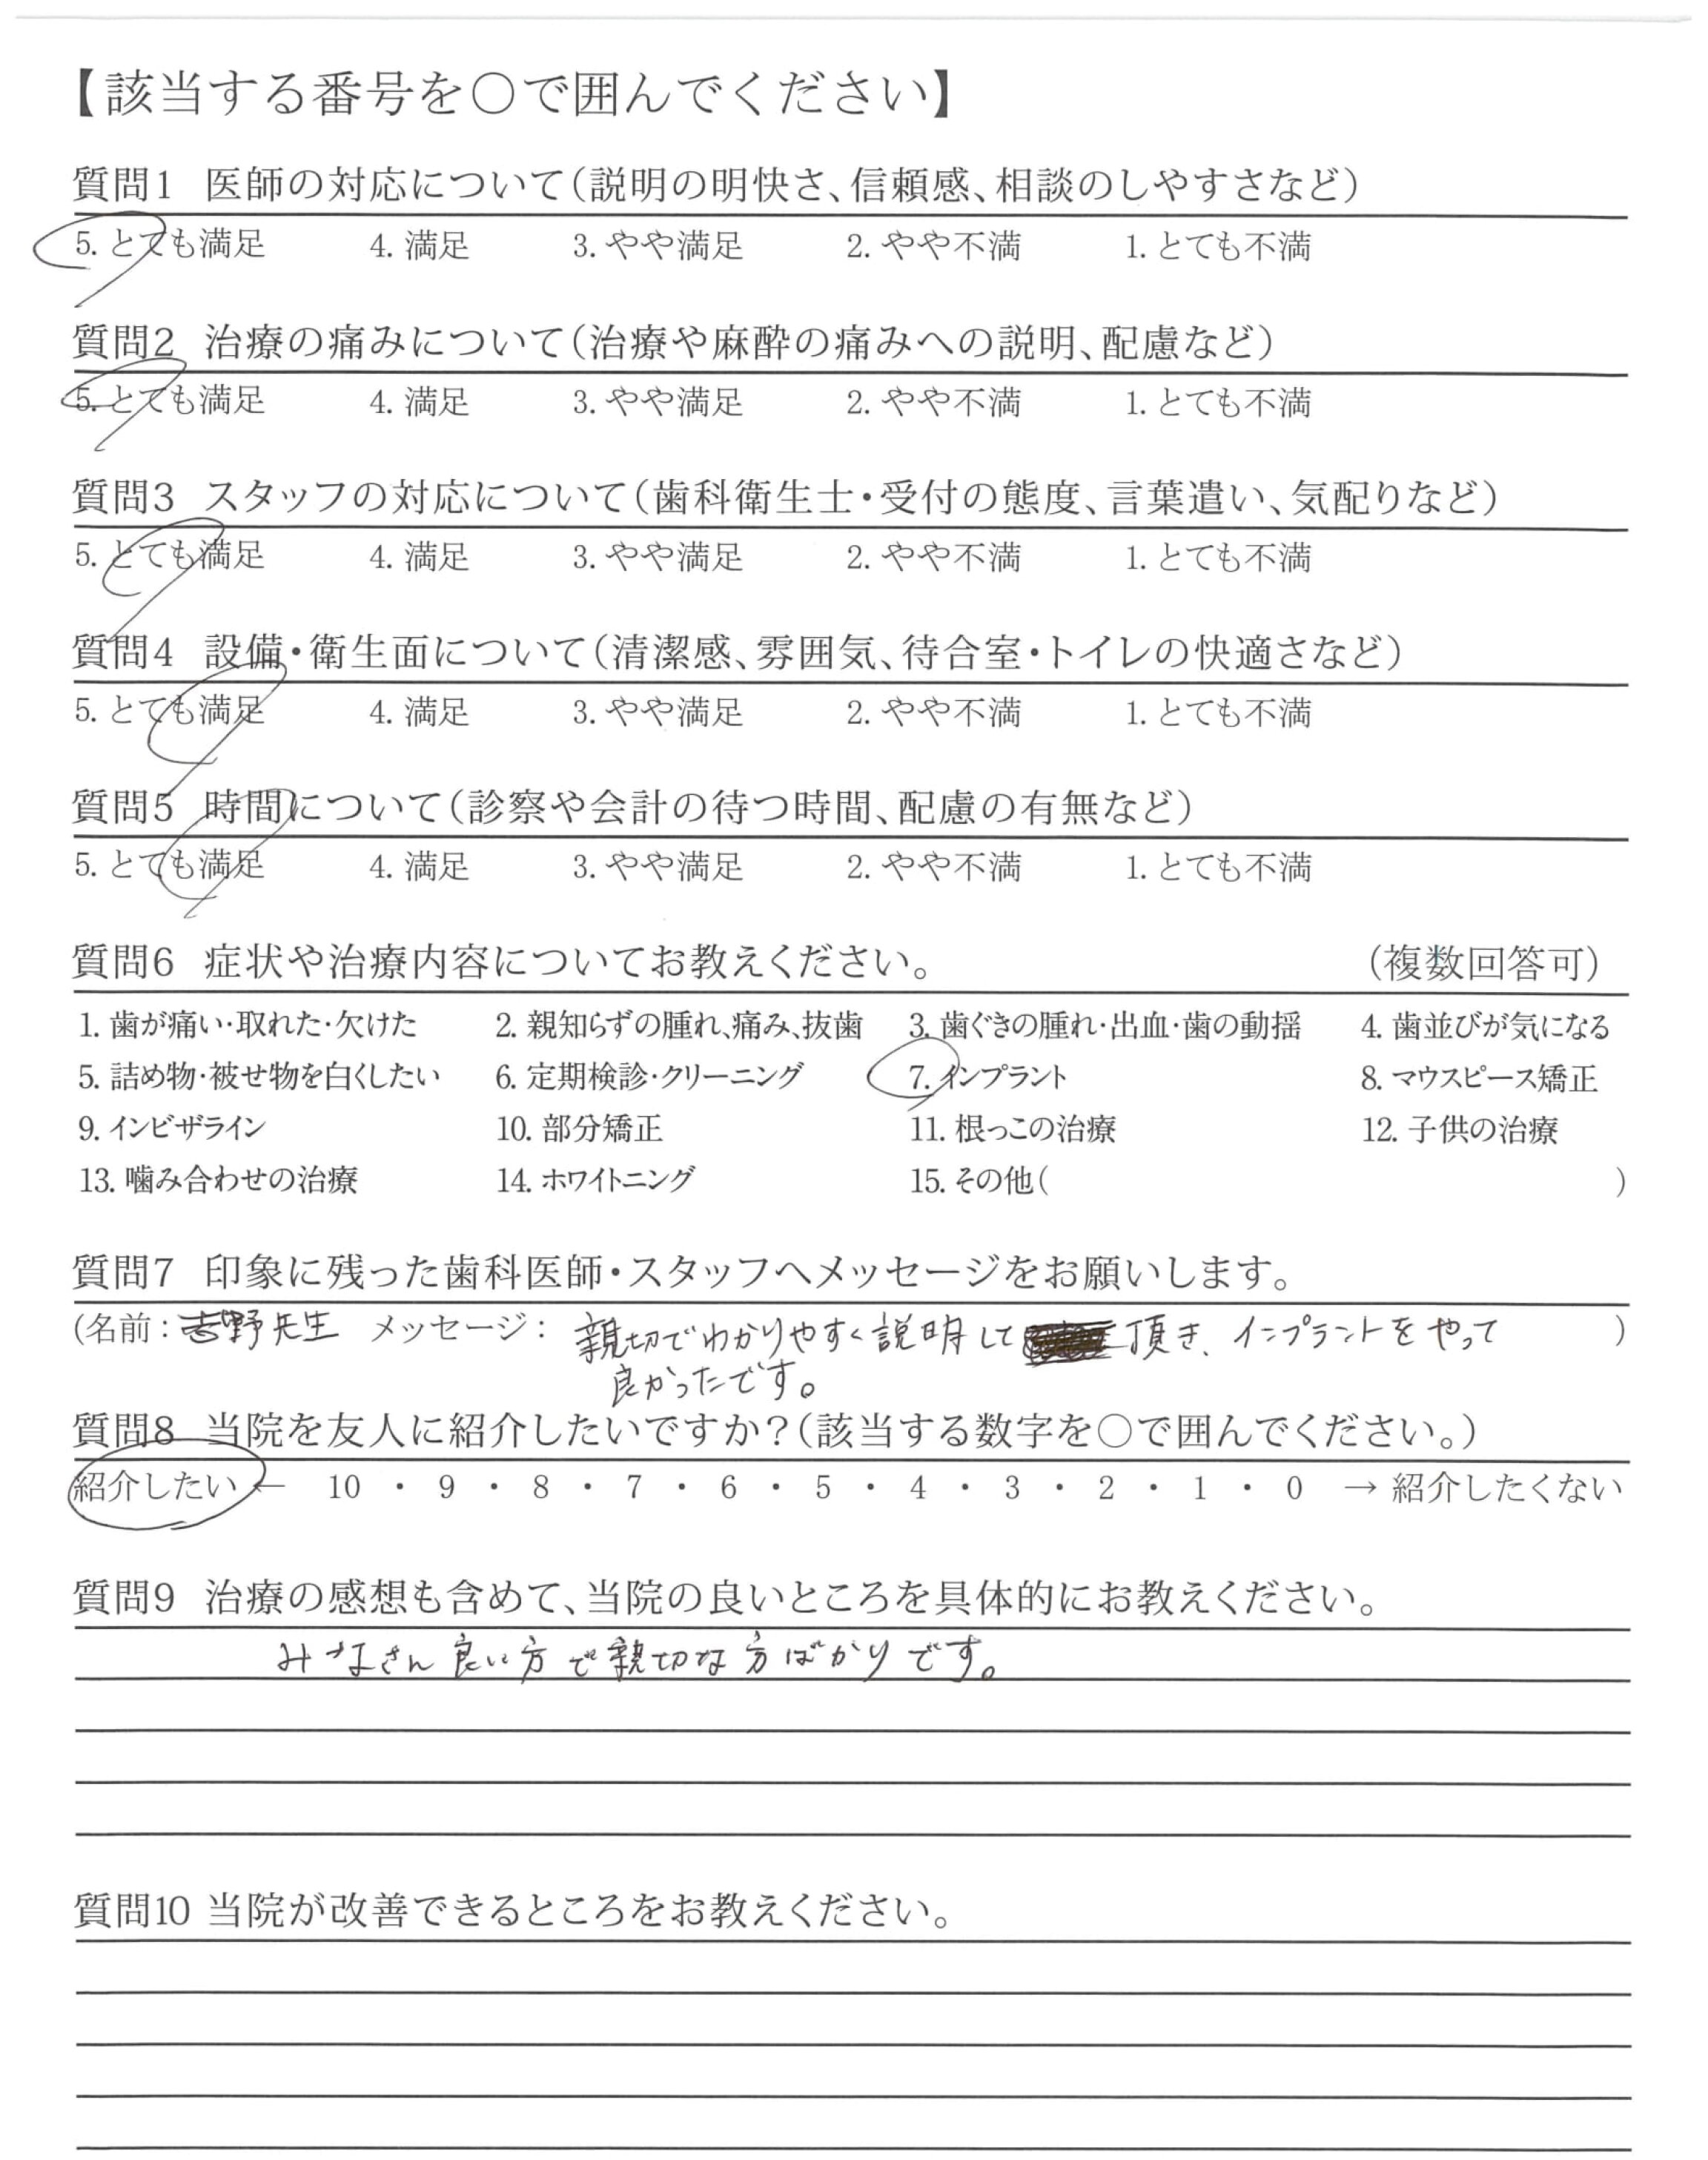 【該当する番号を○で囲んでください】
質問1 医師の対応について(説明の明快さ、信頼感、相談のしやすさなど)
5. とても満足 4. 満足 3. やや満足 2. やや不満 1. とても不満
質問2 治療の痛みについて(治療や麻酔の痛みへの説明、配慮など)
5. とても満足 4. 満足 3. やや満足 2. やや不満 1. とても不満
質問3 スタッフの対応について(歯科衛生士・受付の態度、言葉遣い、気配りなど)
5. とても満足 4. 満足 3. やや満足 2. やや不満 1. とても不満
質問4 設備・衛生面について(清潔感、雰囲気、待合室・トイレの快適さなど)
5. とても満足 4. 満足 3. やや満足 2. やや不満 1. とても不満
質問5 時間について(診察や会計の待つ時間、配慮の有無など)
5. とても満足 4. 満足 3. やや満足 2. やや不満 1. とても不満
質問6 症状や治療内容についてお教えください。 (複数回答可)
1. 歯が痛い・取れた・欠けた 2. 親知らずの腫れ、痛み、抜歯 3. 歯ぐきの腫れ・出血・歯の動揺 4. 歯並びが気になる
5. 詰め物・被せ物を白くしたい 6. 定期検診・クリーニング 7. インプラント 8. マウスピース矯正
9. インビザライン 10. 部分矯正 11. 根っこの治療 12. 子供の治療
13. 噛み合わせの治療 14. ホワイトニング 15. その他( )
質問7 印象に残った歯科医師・スタッフへメッセージをお願いします。
(名前：吉野先生 メッセージ： 親切でわかりやすく説明して頂き、インプラントをやって )
良かったです。
質問8 当院を友人に紹介したいですか？(該当する数字を○で囲んでください。)
紹介したい ← 10 ・ 9 ・ 8 ・ 7 ・ 6 ・ 5 ・ 4 ・ 3 ・ 2 ・ 1 ・ 0 → 紹介したくない
質問9 治療の感想も含めて、当院の良いところを具体的にお教えください。
みなさん良い方で親切な方ばかりです。
質問10 当院が改善できるところをお教えください。